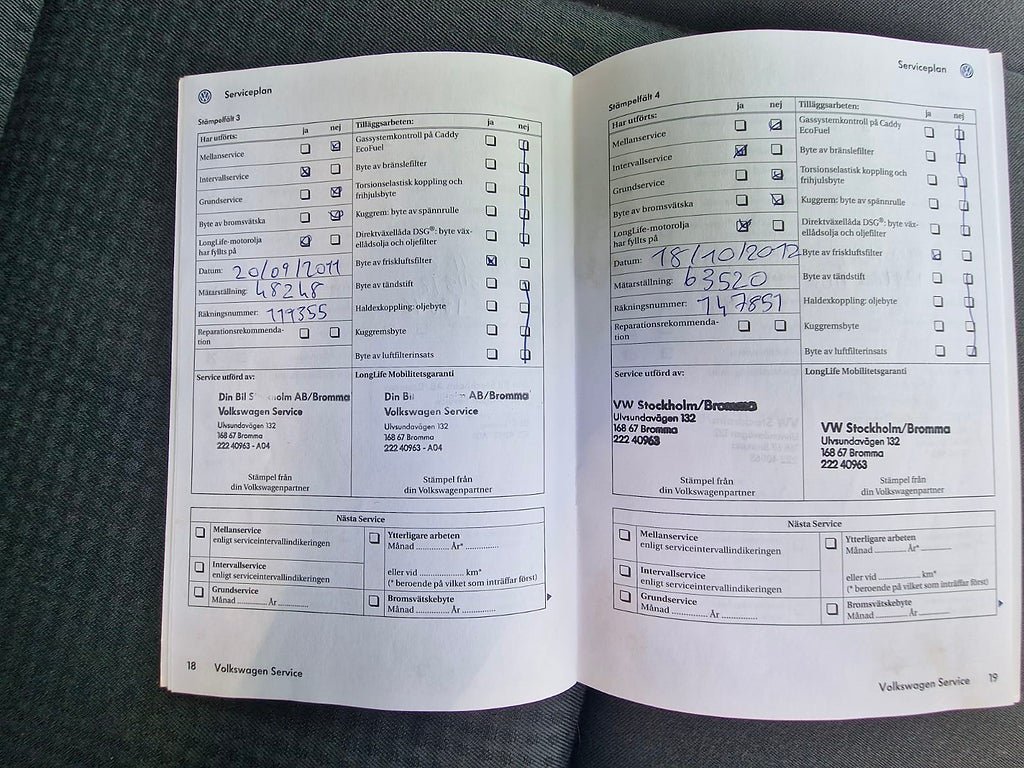 Serviceplan
Stämpelfält 3
Har utförts: ja nej
Mellanservice
Intervallservice
Grundservice
Byte av bromsvätska
LongLife-motorolja
har fyllts på
Datum: 20/09/2011
Mätarställning: 48248
Räkningsnummer: 119355
Reparationsrekommenda-
tion
Tilläggsarbeten: ja nej
Gassystemkontroll på Caddy
EcoFuel
Byte av bränslefilter
Torsionselastisk koppling och
frihjulsbyte
Kuggrem: byte av spännrulle
Direktväxellåda DSG®: byte väx-
ellådsolja och oljefilter
Byte av friskluftsfilter
Byte av tändstift
Haldexkoppling: oljebyte
Kuggremsbyte
Byte av luftfilterinsats
Service utförd av:
Din Bil olm AB/Bromma
Volkswagen Service
Ulvsundavägen 132
168 67 Bromma
222 40963 - A04
Stämpel från
din Volkswagenpartner
LongLife Mobilitetsgaranti
Din Bil AB/Bromma
Volkswagen Service
Ulvsundavägen 132
168 67 Bromma
222 40963 - A04
Stämpel från
din Volkswagenpartner
Nästa Service
Mellanservice
enligt serviceintervallindikeringen
Intervallservice
enligt serviceintervallindikeringen
Grundservice
Månad .............. År ..............
Ytterligare arbeten
Månad .............. År* ..............
eller vid .................... km*
(* beroende på vilket som inträffar först)
Bromsvätskebyte
Månad .............. År ..............
18 Volkswagen Service
Serviceplan
Stämpelfält 4
Har utförts: ja nej
Mellanservice
Intervallservice
Grundservice
Byte av bromsvätska
LongLife-motorolja
har fyllts på
Datum: 18/10/2012
Mätarställning: 63520
Räkningsnummer: 147851
Reparationsrekommenda-
tion
Tilläggsarbeten: ja nej
Gassystemkontroll på Caddy
EcoFuel
Byte av bränslefilter
Torsionselastisk koppling och
frihjulsbyte
Kuggrem: byte av spännrulle
Direktväxellåda DSG®: byte väx-
ellådsolja och oljefilter
Byte av friskluftsfilter
Byte av tändstift
Haldexkoppling: oljebyte
Kuggremsbyte
Byte av luftfilterinsats
Service utförd av:
VW Stockholm/Bromma
Ulvsundavägen 132
168 67 Bromma
222 40963
Stämpel från
din Volkswagenpartner
LongLife Mobilitetsgaranti
VW Stockholm/Bromma
Ulvsundavägen 132
168 67 Bromma
222 40963
Stämpel från
din Volkswagenpartner
Nästa Service
Mellanservice
enligt serviceintervallindikeringen
Intervallservice
enligt serviceintervallindikeringen
Grundservice
Månad .............. År ..............
Ytterligare arbeten
Månad .............. År* ..............
eller vid .................... km*
(* beroende på vilket som inträffar först)
Bromsvätskebyte
Månad .............. År ..............
Volkswagen Service 19